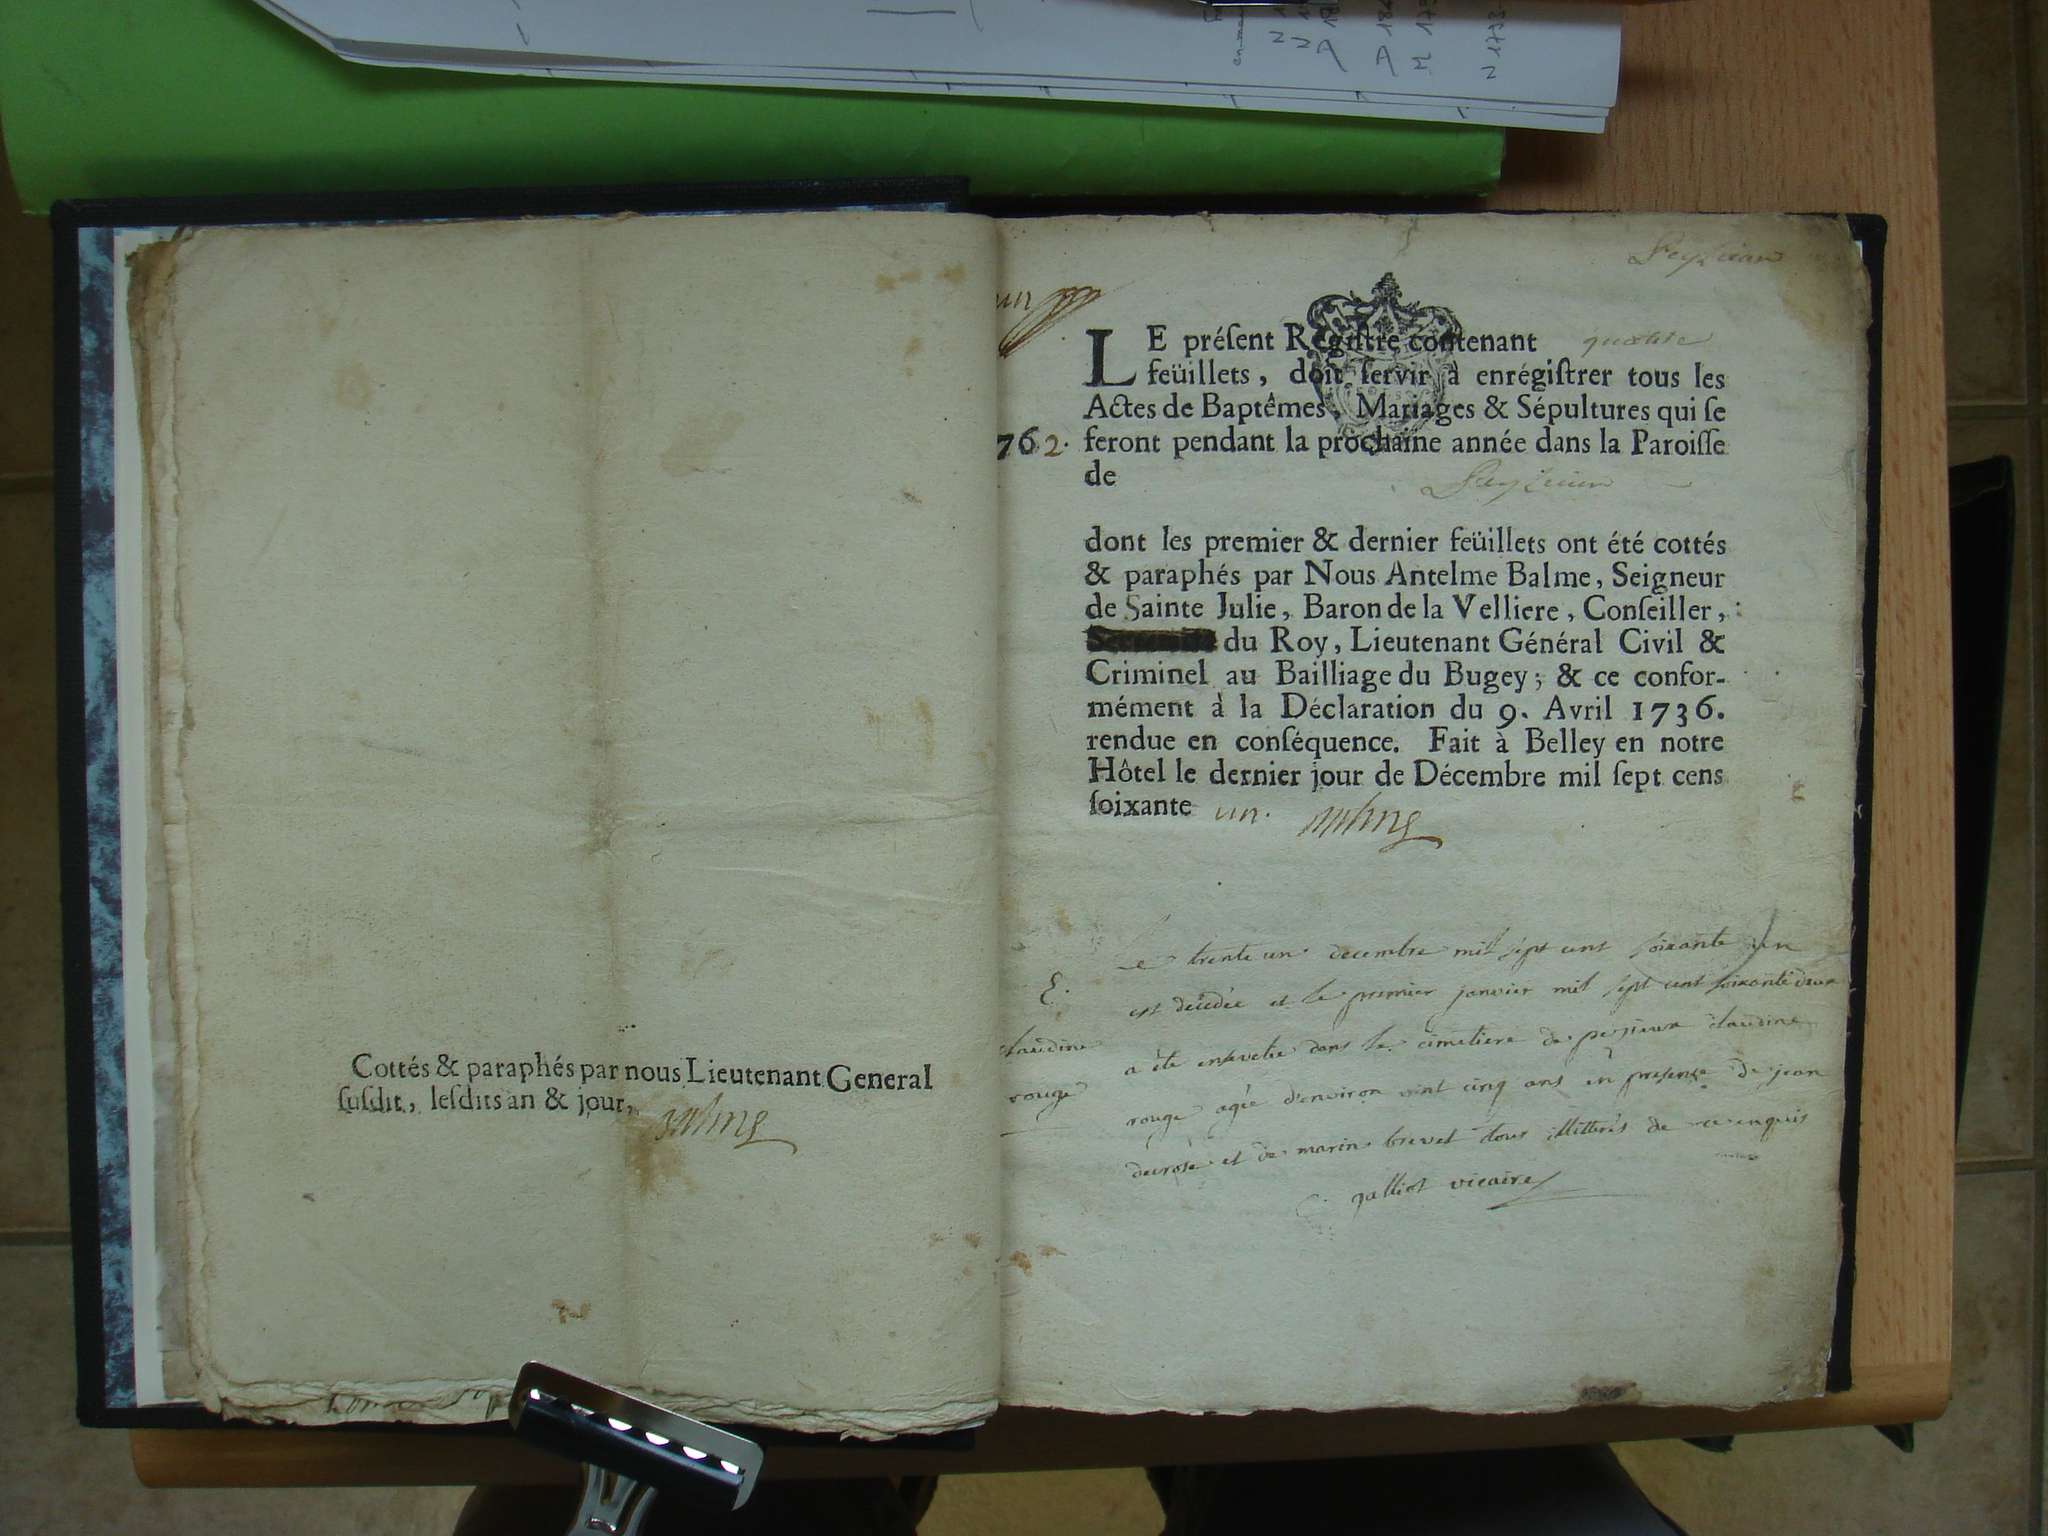 Cottés & paraphés par nous Lieutenant General
ſuſdit, leſdits an & jour,
un
LE préſent Regiſtre contenant quatre
feüillets, doit ſervir à enrégiſtrer tous les
Actes de Baptêmes, Mariages & Sépultures qui ſe
762. feront pendant la prochaine année dans la Paroiſſe
de
dont les premier & dernier feüillets ont été cottés
& paraphés par Nous Antelme Balme, Seigneur
de Sainte Julie, Baron de la Velliere, Conſeiller,
du Roy, Lieutenant Général Civil &
Criminel au Bailliage du Bugey; & ce confor-
mément à la Déclaration du 9. Avril 1736.
rendue en conſéquence. Fait à Belley en notre
Hôtel le dernier jour de Décembre mil ſept cens
ſoixante un.
E.
claudine
rouge
Le trente un decembre mil sept cent soixante un
est decedée et le premier janvier mil sept cent soixante deux
a été ensevelie dans le cimetiere de peizieux claudine
rouge agée d'environ vint cinq ans en presence de jean
decrose et de marin brevet tous illitterés de ce enquis
galliot vicaire